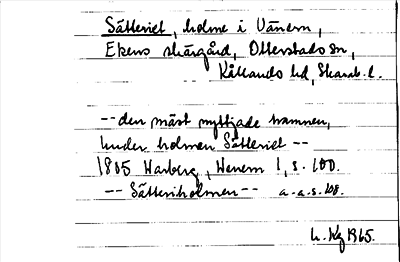 Sätteriet, holme i Vänern,
Ekens skärgård, Otterstads sn,
Kållands hd, Skarab. l.
-- den mäst nyttjade hamnen,
under holmen Sätteriet --
1805 Warberg, Wenern 1, s. 100.
-- Sätteriholmen -- a.a.s. 108.
1965.